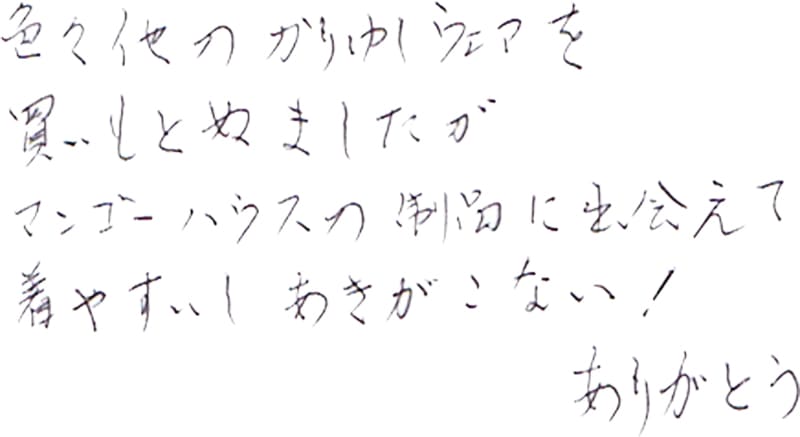 色々他のかりゆしウェアを
買いもとめましたが
マンゴーハウスの制品に出会えて
着やすいし あきがこない!
ありがとう